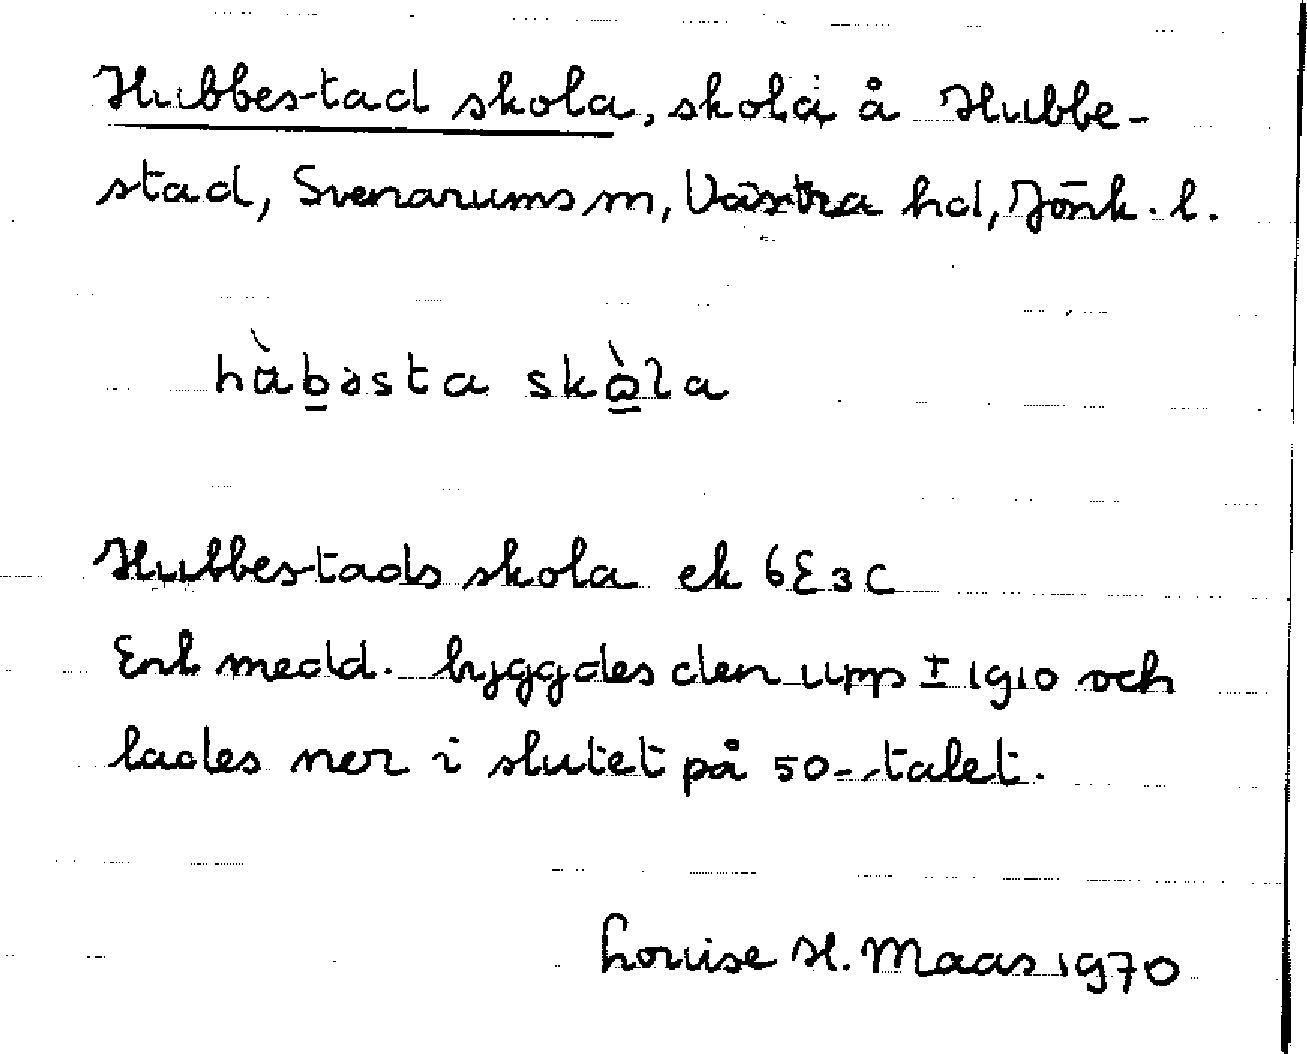 Hubbestad skola, skola å Hubbe-
stad, Svenarums sn, Västra hd, Jönk. l.
hàbəsta skòla
Hubbestads skola ek 6E3c
Enl medd. byggdes den upp ± 1910 och
lades ner i slutet på 50-talet.
Louise H. Maas 1970